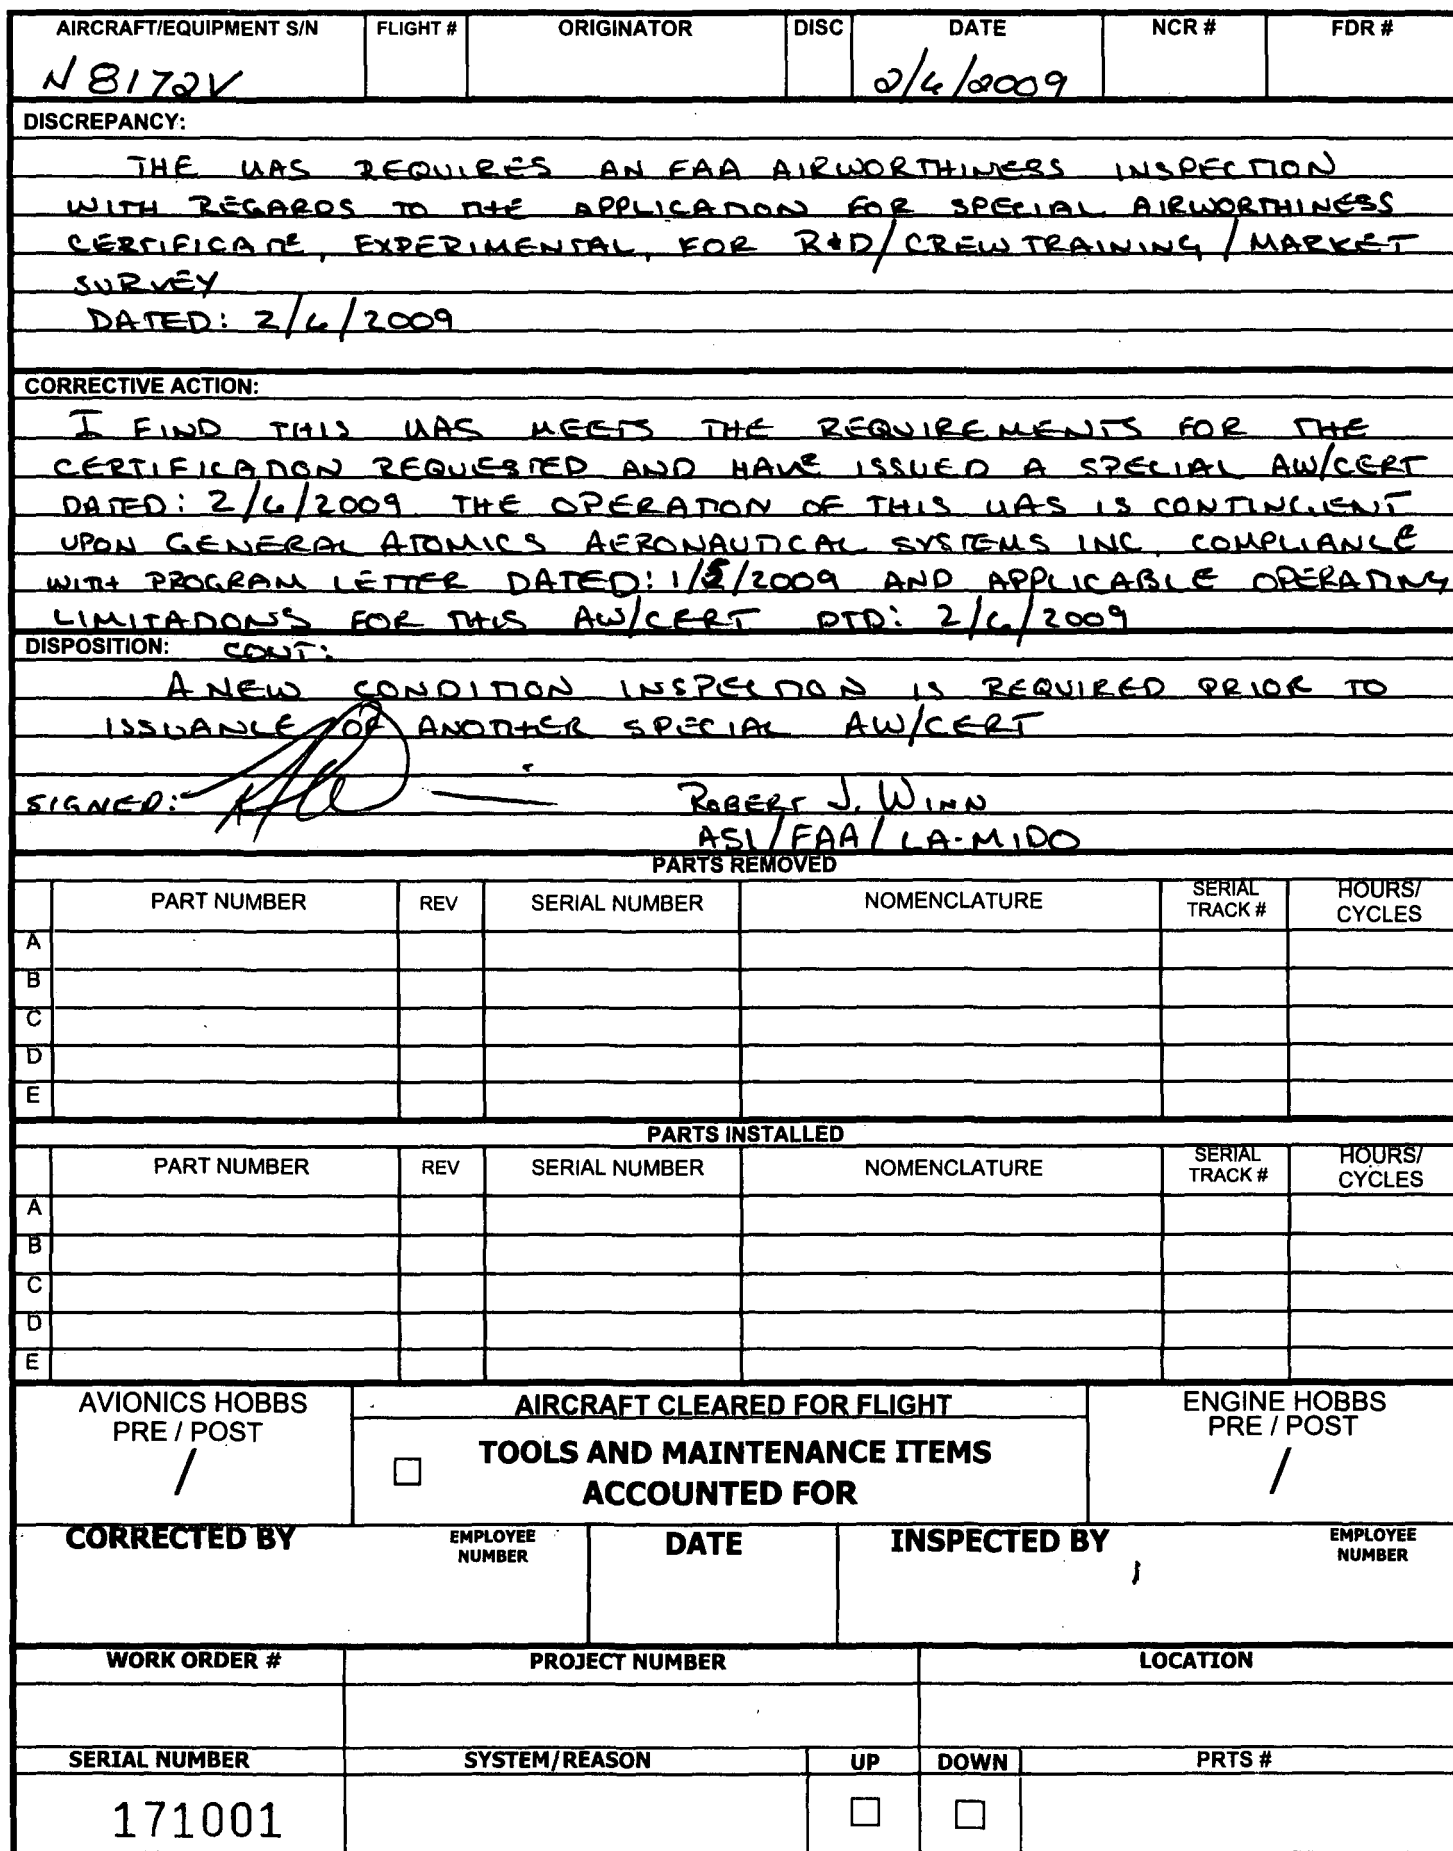 AIRCRAFT/EQUIPMENT S/N FLIGHT # ORIGINATOR DISC DATE NCR # FDR #
N8172V 2/6/2009
DISCREPANCY:
THE UAS REQUIRES AN FAA AIRWORTHINESS INSPECTION
WITH REGARDS TO THE APPLICATION FOR SPECIAL AIRWORTHINESS
CERTIFICATE, EXPERIMENTAL, FOR R&D/CREW TRAINING/MARKET
SURVEY
DATED: 2/6/2009
CORRECTIVE ACTION:
I FIND THIS UAS MEETS THE REQUIREMENTS FOR THE
CERTIFICATION REQUESTED AND HAVE ISSUED A SPECIAL AW/CERT
DATED: 2/6/2009. THE OPERATION OF THIS UAS IS CONTINGENT
UPON GENERAL ATOMICS AERONAUTICAL SYSTEMS INC. COMPLIANCE
WITH PROGRAM LETTER DATED: 1/5/2009 AND APPLICABLE OPERATING
LIMITATIONS FOR THIS AW/CERT DTD: 2/6/2009
DISPOSITION: CONT:
A NEW CONDITION INSPECTION IS REQUIRED PRIOR TO
ISSUANCE OF ANOTHER SPECIAL AW/CERT
SIGNED: ROBERT J. WINN
ASI/FAA/LA-MIDO
PARTS REMOVED
PART NUMBER REV SERIAL NUMBER NOMENCLATURE SERIAL TRACK # HOURS/ CYCLES
A
B
C
D
E
PARTS INSTALLED
PART NUMBER REV SERIAL NUMBER NOMENCLATURE SERIAL TRACK # HOURS/ CYCLES
A
B
C
D
E
AVIONICS HOBBS
PRE / POST
/
AIRCRAFT CLEARED FOR FLIGHT
TOOLS AND MAINTENANCE ITEMS
ACCOUNTED FOR
ENGINE HOBBS
PRE / POST
/
CORRECTED BY EMPLOYEE NUMBER DATE INSPECTED BY EMPLOYEE NUMBER
WORK ORDER # PROJECT NUMBER LOCATION
SERIAL NUMBER SYSTEM/REASON UP DOWN PRTS #
171001